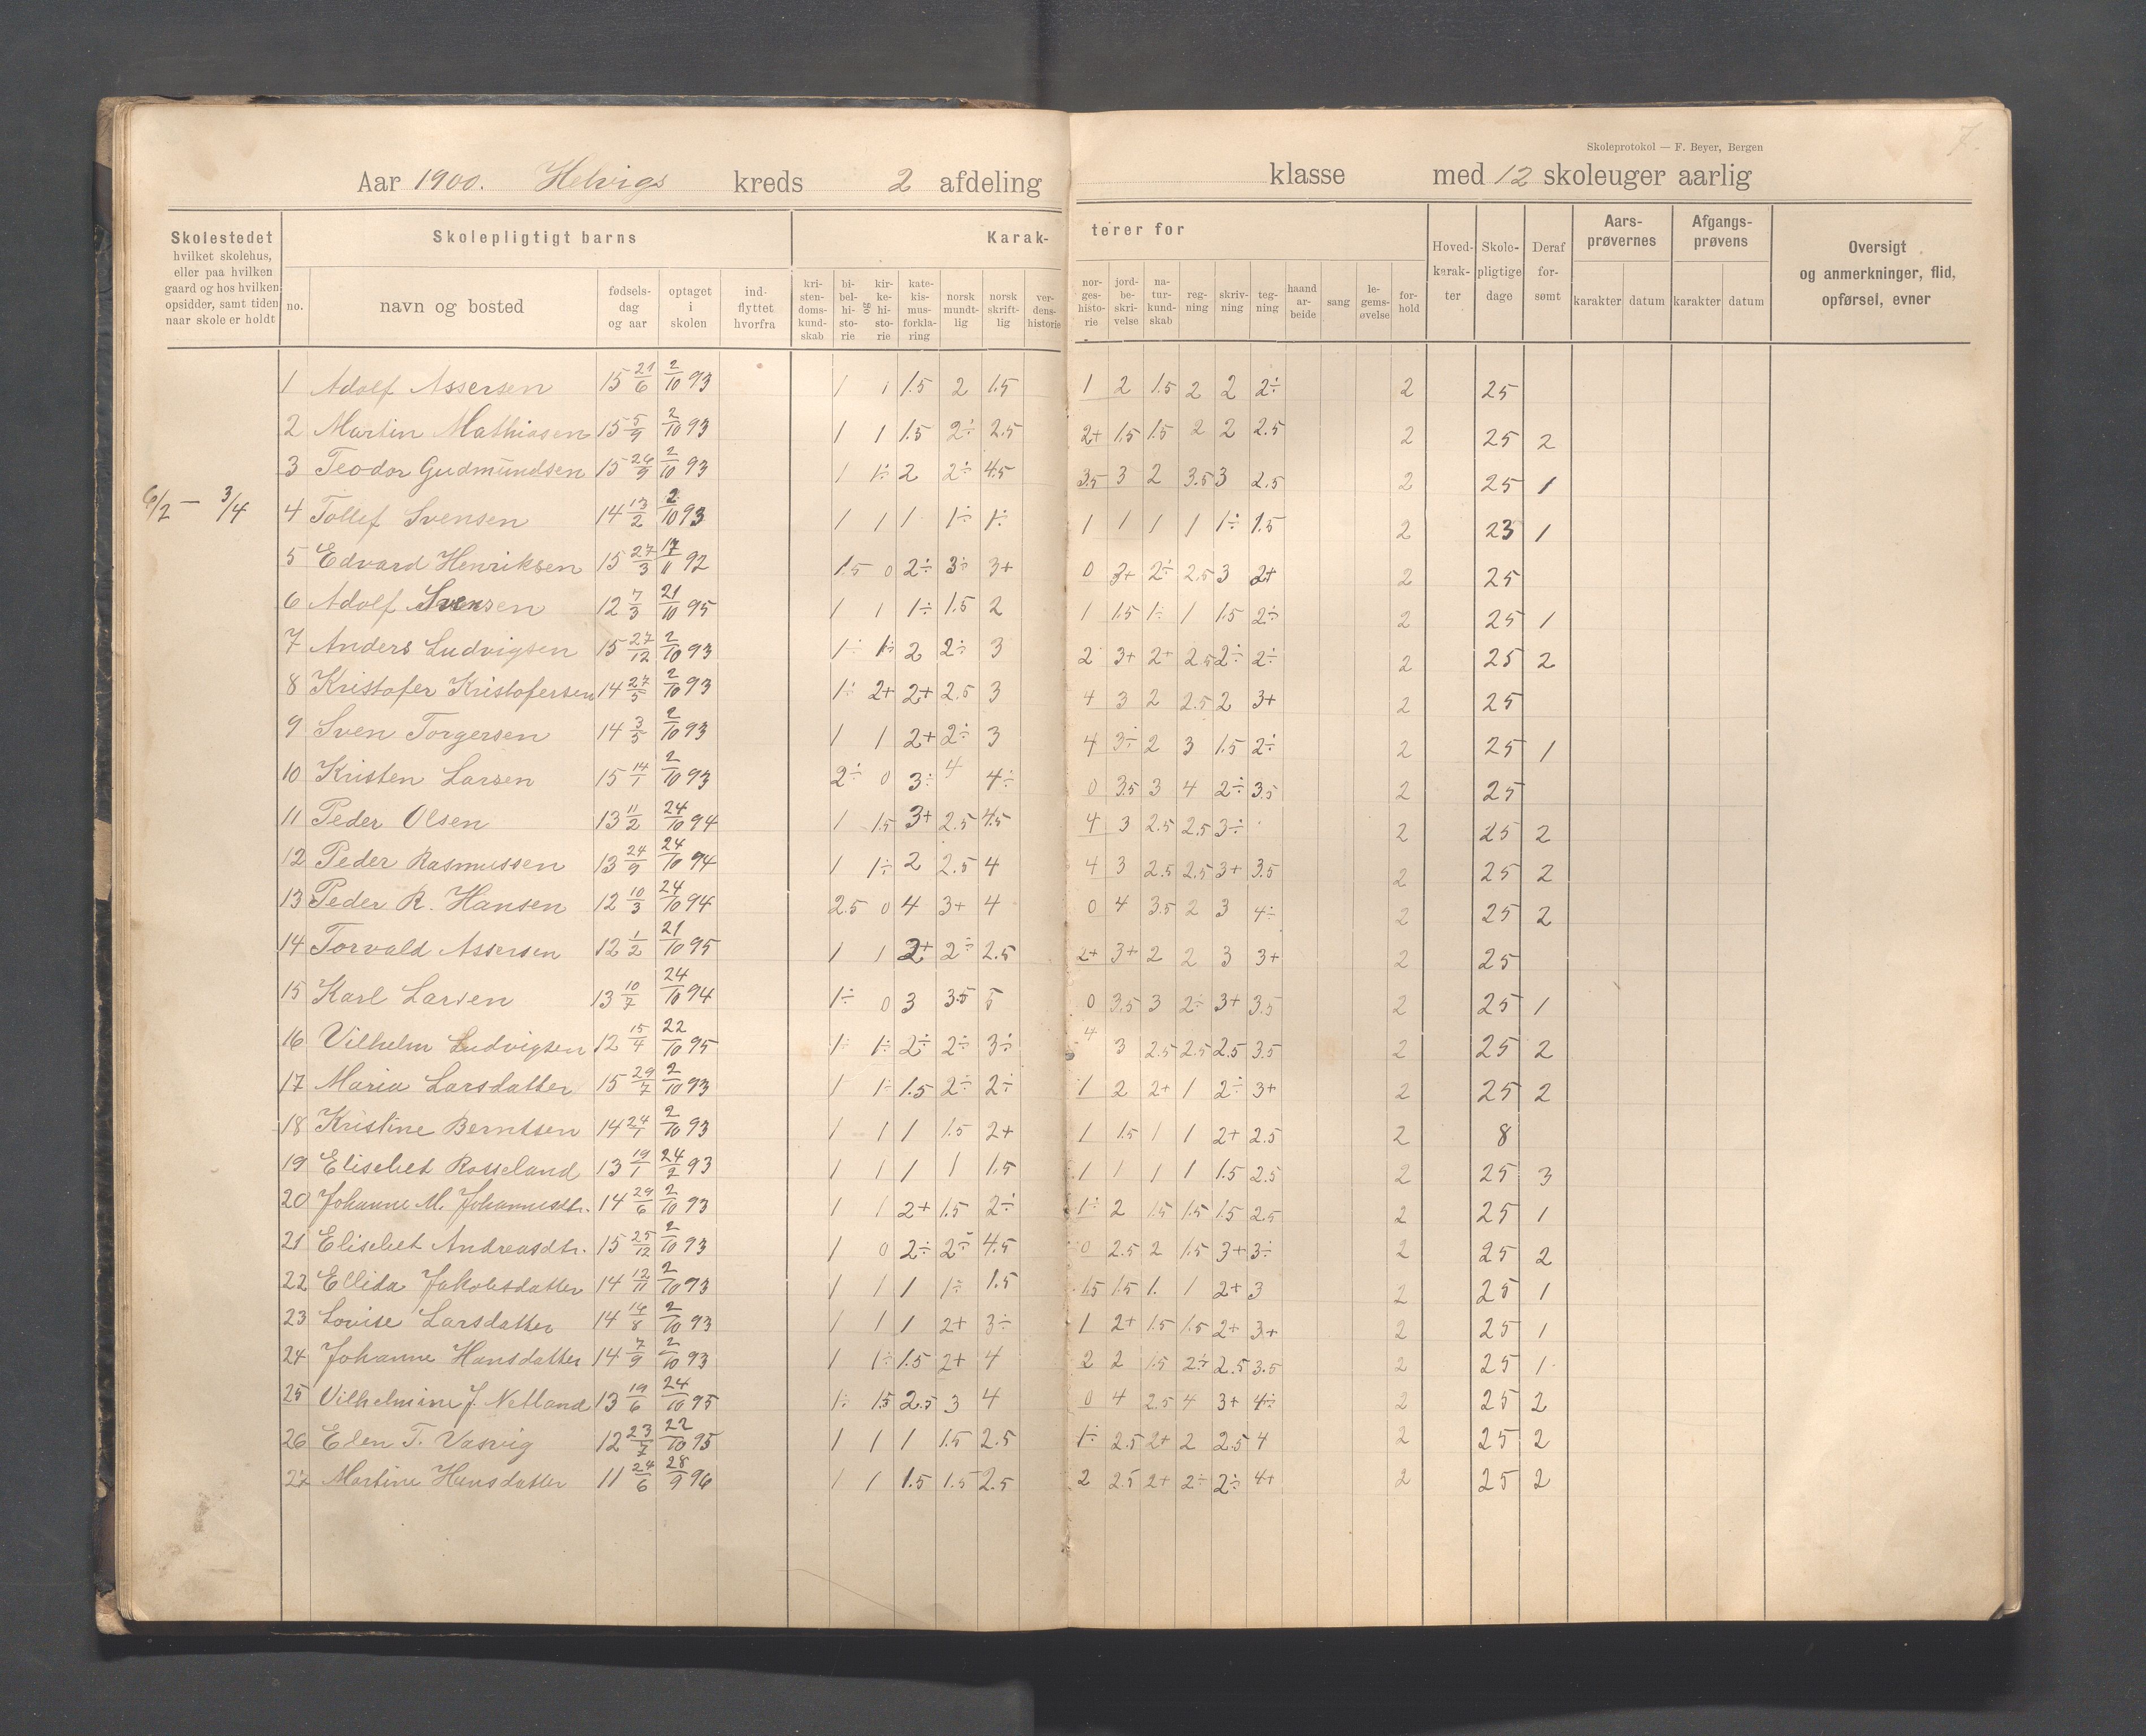 Skoleprotokol — F. Beyer, Bergen
7.
Aar 1900. Helvigs kreds 2 afdeling klasse med 12 skoleuger aarlig
Skolestedet hvilket skolehus, eller paa hvilken gaard og hos hvilken opsidder, samt tiden naar skole er holdt
Skolepligtigt barns
no. navn og bosted fødselsdag og aar optaget i skolen indflyttet hvorfra
Karakterer for
kristendomskundskab bibelhistorie og kirkehistorie katekismusforklaring norsk mundtlig norsk skriftlig verdenshistorie norgeshistorie jordbeskrivelse naturkundskab regning skrivning tegning haandarbeide sang legemsøvelse forhold
Hovedkarakter Skolepligtige dage Deraf forsømt
Aarsprøvernes karakter datum
Afgangsprøvens karakter datum
Oversigt og anmerkninger, flid, opførsel, evner
6/2 — 3/4
1 Adolf Assersen 15 21/6 2/10 93 1 1 1.5 2 1.5 1 2 1.5 2 2 2÷ 2 25
2 Martin Mathiasen 15 5/9 2/10 93 1 1 1.5 2÷ 2.5 2+ 1.5 1.5 2 2 2.5 2 25 2
3 Teodor Gudmundsen 15 26/9 2/10 93 1 1÷ 2 2÷ 4.5 3.5 3 2 3.5 3 2.5 2 25 1
4 Tollef Svensen 14 13/2 2/10 93 1 1 1 1÷ 1÷ 1 1 1 1 1÷ 1.5 2 23 1
5 Edvard Henriksen 15 27/3 17/11 92 1.5 0 2÷ 3÷ 3+ 0 3+ 2÷ 2.5 3 2+ 2 25
6 Adolf Svensen 12 7/3 21/10 95 1 1 1÷ 1.5 2 1 1.5 1÷ 1 1.5 2÷ 2 25 1
7 Anders Ludvigsen 15 27/12 2/10 93 1÷ 1÷ 2 2÷ 3 2 3+ 2+ 2.5 2÷ 2÷ 2 25 2
8 Kristofer Kristofersen 14 27/5 2/10 93 1÷ 2+ 2+ 2.5 3 4 3 2 2.5 2 3+ 2 25
9 Sven Torgersen 14 3/5 2/10 93 1 1 2+ 2÷ 3 4 3÷ 2 3 1.5 2÷ 2 25 1
10 Kristen Larsen 15 14/1 2/10 93 2÷ 0 3÷ 4 4÷ 0 3.5 3 4 2÷ 3.5 2 25
11 Peder Olsen 13 11/2 24/10 94 1 1.5 3+ 2.5 4.5 4 3 2.5 2.5 3÷ 2 25 2
12 Peder Rasmussen 13 24/9 24/10 94 1 1÷ 2 2.5 4 4 3 2.5 2.5 3+ 3.5 2 25 2
13 Peder R. Hansen 12 10/3 24/10 94 2.5 0 4 3+ 4 0 4 3.5 2 3 4÷ 2 25 2
14 Torvald Assersen 12 1/2 21/10 95 1 1 2+ 2÷ 2.5 2+ 3+ 2 2 3 3+ 2 25
15 Karl Larsen 13 10/7 24/10 94 1÷ 0 3 3.5 5 0 3.5 3 2÷ 3+ 3.5 2 25 1
16 Vilhelm Ludvigsen 12 15/4 22/10 95 1÷ 1÷ 2÷ 2÷ 3÷ 4 3 2.5 2.5 2.5 3.5 2 25 2
17 Maria Larsdatter 15 29/7 2/10 93 1 1÷ 1.5 2÷ 2÷ 1 2 2+ 1 2÷ 3+ 2 25 2
18 Kristine Berntsen 14 24/1 2/10 93 1 1 1 1.5 2+ 1 1.5 1 1 2+ 2.5 2 8
19 Elisebet Rosseland 13 19/1 24/2 93 1 1 1 1 1.5 1 1 1 1 1.5 2.5 2 25 3
20 Johanne M. Johannesdtr. 14 29/6 2/10 93 1 1 2+ 1.5 2÷ 1÷ 2 1.5 1.5 1.5 2.5 2 25 1
21 Elisebet Andreasdtr. 15 25/12 2/10 93 1 0 2÷ 2÷ 4.5 0 2.5 2 1.5 3+ 3÷ 2 25 2
22 Ellida Jakobsdatter 14 12/11 2/10 93 1 1 1 1÷ 1.5 1.5 1.5 1. 1 2+ 3 2 25 1
23 Lovise Larsdatter 14 14/8 2/10 93 1 1 1 2+ 3÷ 1 2+ 1.5 1.5 2+ 3+ 2 25 1
24 Johanne Hansdatter 14 7/9 2/10 93 1 1÷ 1.5 2+ 4 2 2 1.5 2÷ 2.5 3.5 2 25 1
25 Vilhelmine J. Netland 13 19/6 24/10 95 1÷ 1.5 2.5 3 4 0 4 2.5 4 3+ 4÷ 2 25 2
26 Elen T. Vasvig 12 23/7 22/10 95 1 1 1 1.5 2.5 1÷ 2.5 2+ 2 2.5 4 2 25 2
27 Martine Hansdatter 11 24/6 28/9 96 1 1 1.5 1.5 2.5 2 2.5 2+ 2÷ 2÷ 4+ 2 25 2